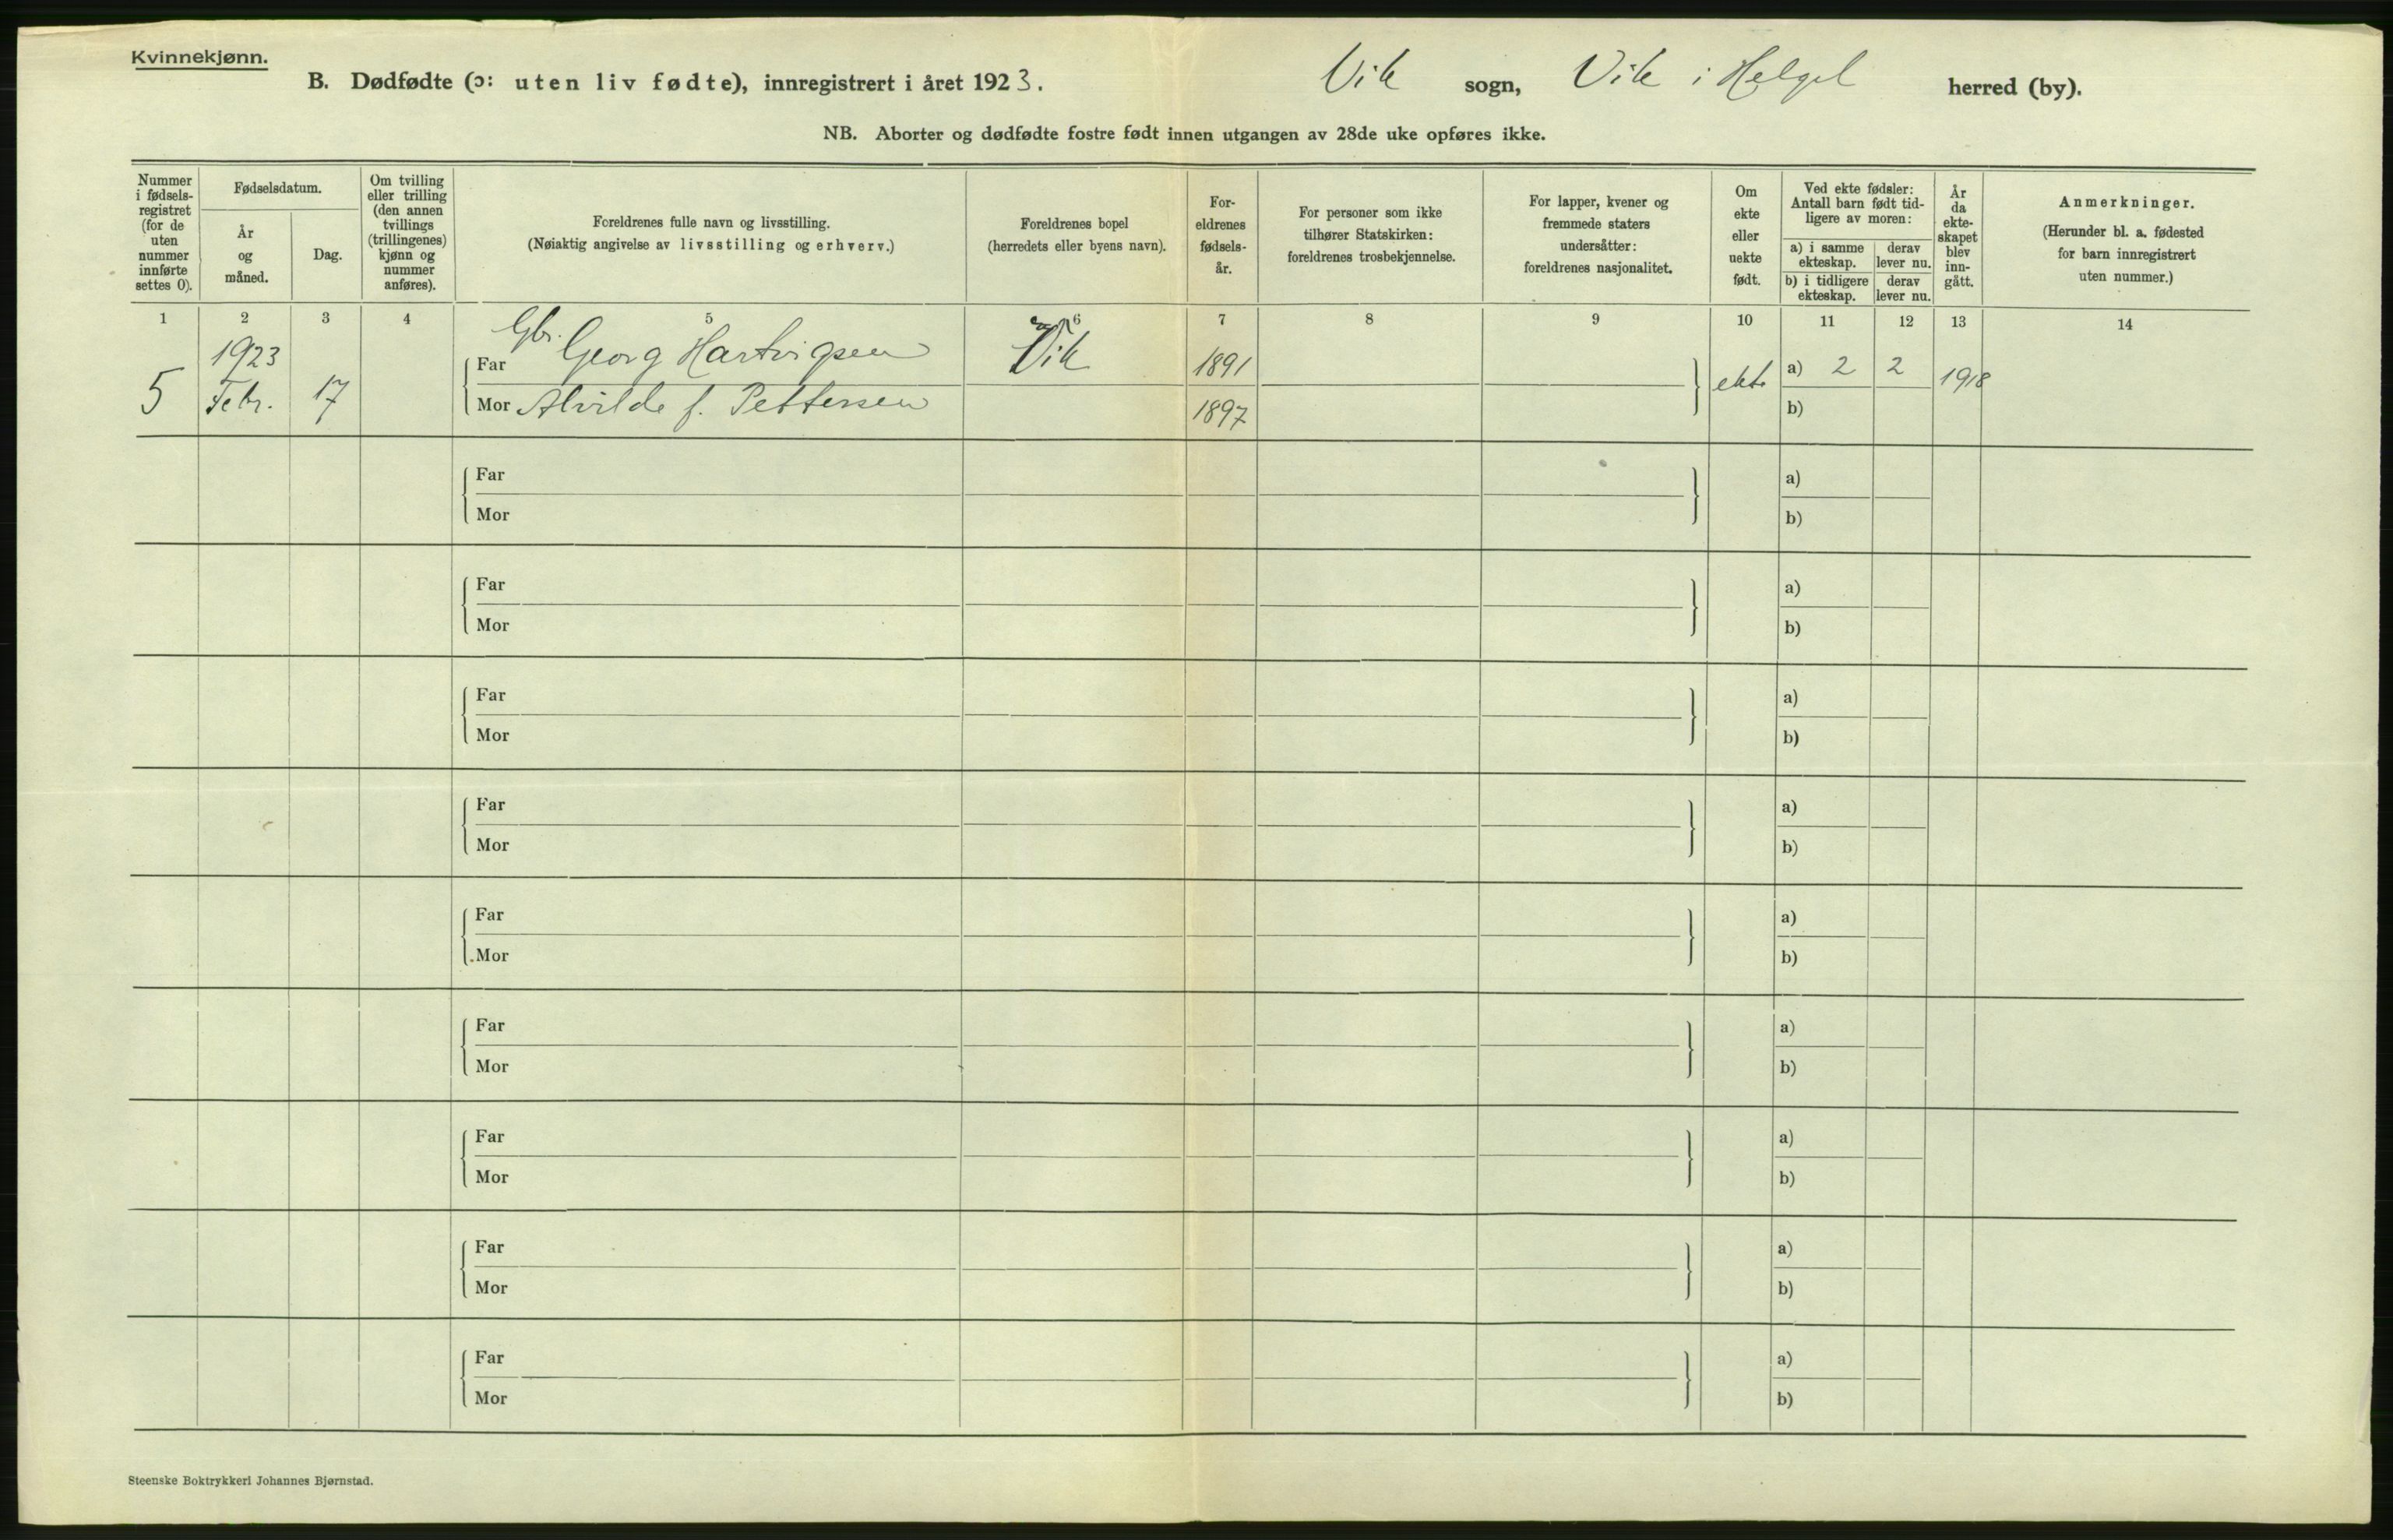 Kvinnekjønn.
B. Dødfødte (ɔ: uten liv fødte), innregistrert i året 1923. Vik sogn, Vik i Helgel herred (by).
NB. Aborter og dødfødte fostre født innen utgangen av 28de uke opføres ikke.
Nummer
i fødsels-
registret
(for de
uten
nummer
innførte
settes 0).
Fødselsdatum.
År
og
måned.
Dag.
Om tvilling
eller trilling
(den annen
tvillings
(trillingenes)
kjønn og
nummer
anføres).
Foreldrenes fulle navn og livsstilling.
(Nøiaktig angivelse av livsstilling og erhverv.)
Foreldrenes bopel
(herredets eller byens navn).
For-
eldrenes
fødsels-
år.
For personer som ikke
tilhører Statskirken:
foreldrenes trosbekjennelse.
For lapper, kvener og
fremmede staters
undersåtter:
foreldrenes nasjonalitet.
Om
ekte
eller
uekte
født.
Ved ekte fødsler:
Antall barn født tid-
ligere av moren:
a) i samme
ekteskap.
derav
lever nu.
b) i tidligere
ekteskap.
derav
lever nu.
År
da
ekte-
skapet
blev
inn-
gått.
Anmerkninger.
(Herunder bl. a. fødested
for barn innregistrert
uten nummer.)
1 2 3 4 5 6 7 8 9 10 11 12 13 14
5 1923 Febr. 17
Gbr.
Far Georg Hartvigsen Vik 1891 ekte a) 2 2 1918
Mor Alvilde f. Pettersen 1897 b)
Far a)
Mor b)
Far a)
Mor b)
Far a)
Mor b)
Far a)
Mor b)
Far a)
Mor b)
Far a)
Mor b)
Far a)
Mor b)
Far a)
Mor b)
Far a)
Mor b)
Steenske Boktrykkeri Johannes Bjørnstad.